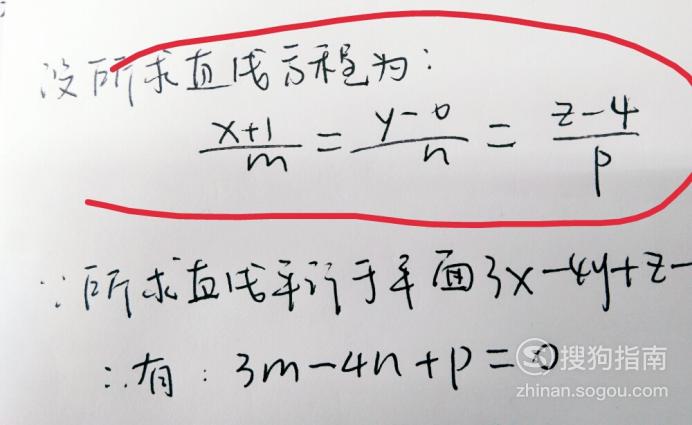 设所求直线方程为：
x+1/m = y-0/n = z-4/p
∵所求直线平行于平面3x-4y+z-
∴有：3m-4n+p=0
搜狗指南
zhinan.sogou.com